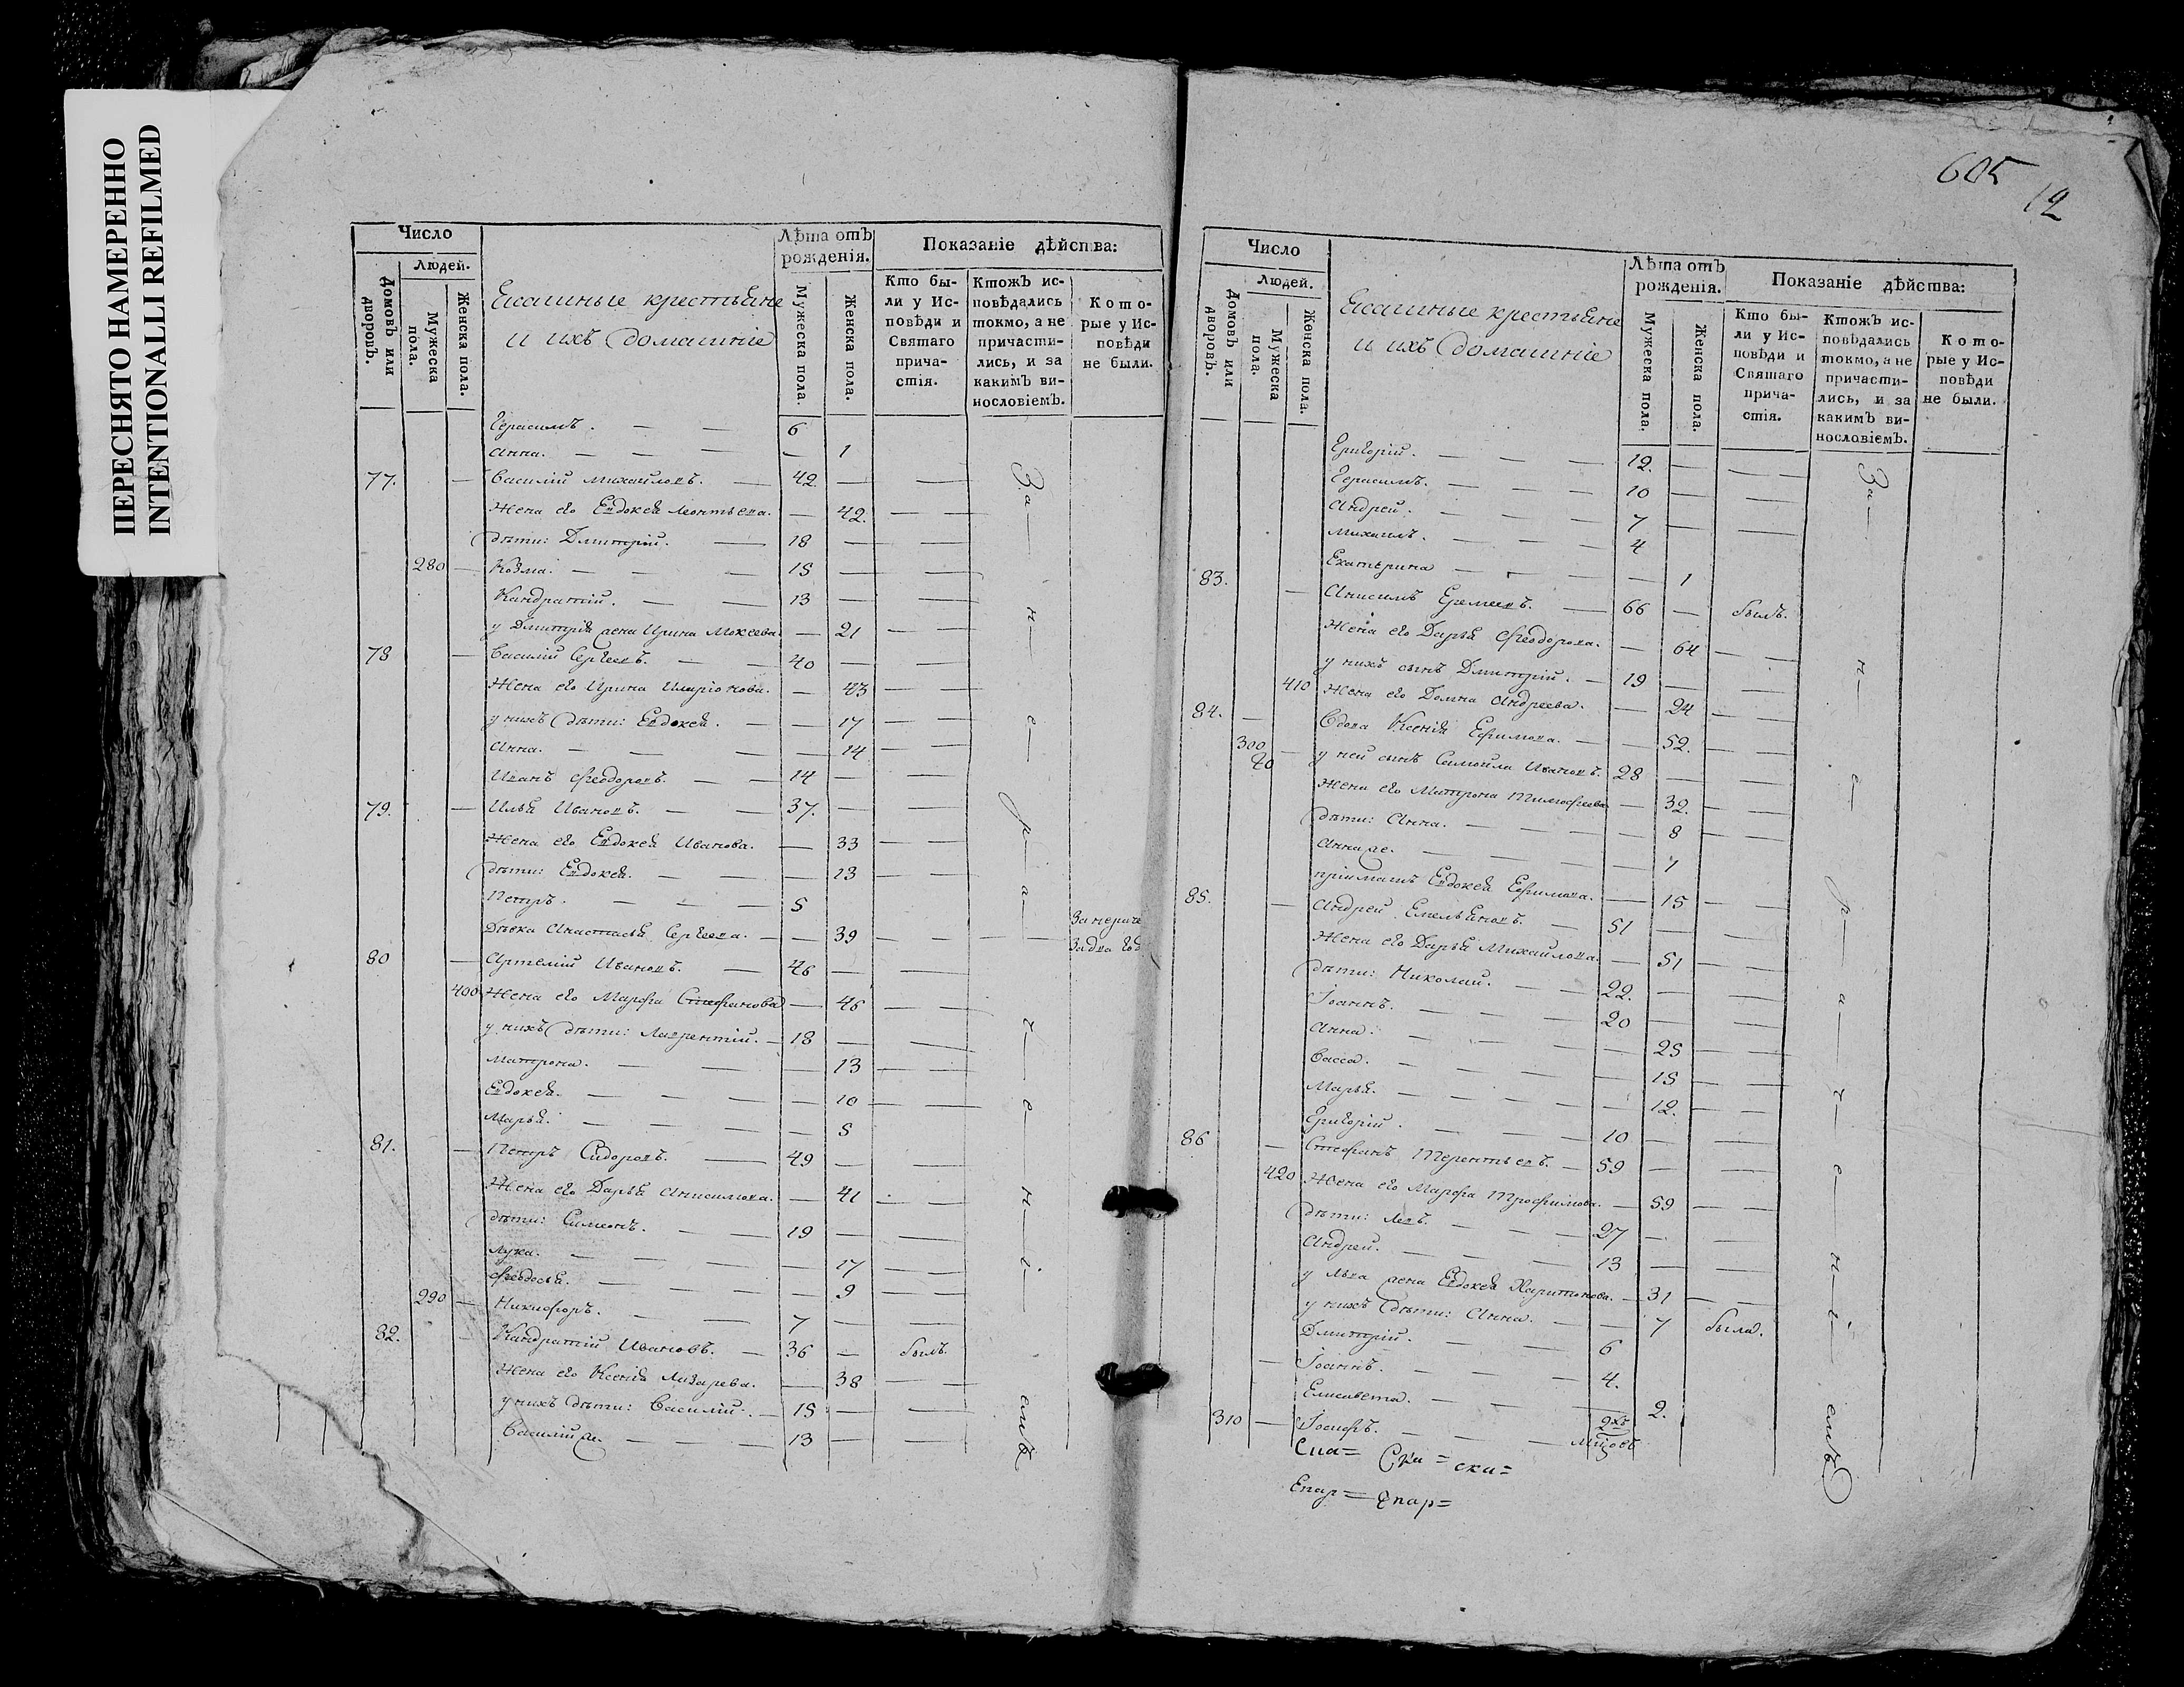 ПЕРЕСНЯТО НАМЕРЕННО
INTENTIONALLI REFILMED
605
12
Число
Людей.
Домовъ или дворовъ.
Мужеска пола.
Женска пола.
Ясашные крестьяне
и ихъ домашніе
Лѣта отъ рожденія.
Мужеска пола.
Женска пола.
Показаніе дѣйства:
Кто были у Исповѣди и Святаго причастія.
Ктожъ исповѣдались токмо, а не причастились, и за какимъ винословіемъ.
Которые у Исповѣди не были.
Герасимъ. 6
Анна. 1
77. Василій Михайловъ. 42
Жена его Евдокея Леонтьева. 42.
дѣти: Дмитрій. 18
280 Козма. 15
Кандратій. 13
у Дмитрія жена Ирина Мокеева. 21
78 Василій Сергеевъ. 40
Жена его Ирина Иларіонова. 43
у нихъ дѣти: Евдокея. 17
Анна. 14
Иванъ Феодоровъ. 14
79. Илья Ивановъ. 37.
Жена его Евдокея Иванова. 33
дѣти: Евдокея. 13
Петръ. 5
Дѣвка Анастасья Сергеева. 39
80 Артемій Ивановъ. 46
400 Жена его Марфа Стефанова 46
у нихъ дѣти: Лаврентій. 18
Матрона. 13
Евдокея. 10
Марья. 5
81. Петръ Сидоровъ. 49
Жена его Дарья Анисимова. 41
дѣти: Симеонъ. 19
Лука. 17
Феодосья. 9
290 Никифоръ. 7
82. Кандратій Ивановъ. 36 былъ.
Жена его Ксенія Лазарева. 38
у нихъ дѣти: Василій. 15
Василій же. 13
За не ра че ні емъ
Число
Людей.
Домовъ или дворовъ.
Мужеска пола.
Женска пола.
Ясашные крестьяне
и ихъ домашніе
Лѣта отъ рожденія.
Мужеска пола.
Женска пола.
Показаніе дѣйства:
Кто были у Исповѣди и Святаго причастія.
Ктожъ исповѣдались токмо, а не причастились, и за какимъ винословіемъ.
Которые у Исповѣди не были.
Григорій. 12.
Герасимъ. 10
Андрей. 7
Михаилъ. 4
Екатерина 1
83. Анисимъ Еремеевъ. 66 былъ.
Жена его Дарья Феодорова. 64
у нихъ сынъ Дмитрій. 19
410 Жена его Домна Андреева. 24
84. Вдова Ксенія Ефимова. 52.
300 у ней сынъ Самойла Ивановъ. 28
Жена его Матрона Тимофеева 32.
дѣти: Анна. 8
Анна же. 7
пріимашъ Евдокея Ефимова. 15
85. Андрей Емельяновъ. 51
Жена его Дарья Михайлова. 51
дѣти: Николай. 22.
Іоаннъ. 20
Анна. 25
Васса. 15
Марья. 12.
Григорій. 10
86 Стефанъ Терентьевъ. 59
420 Жена его Марфа Трофимова. 59
дѣти: Левъ. 27
Андрей. 13
у Льва жена Евдокея Харитонова. 31
у нихъ дѣти: Анна. 7 была.
Дмитрій. 6
Іоаннъ. 4.
Елисавета. 2.
310 Іосифъ. 2хъ мцовъ
За не ра че ні емъ